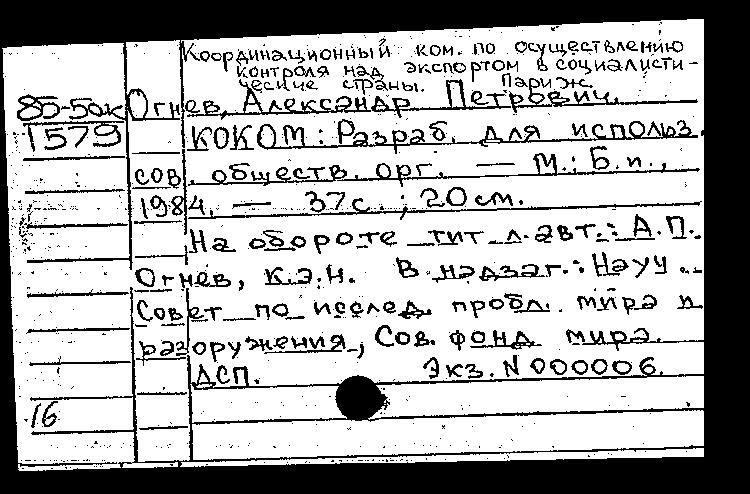 Координационный ком. по осуществлению
контроля над экспортом в социалисти-
ческие страны. Париж.
85-5ок Огнев, Александр Петрович.
1579 КОКОМ: Разраб. для использ.
сов. обществ. орг. — М.: Б.и.,
1984. — 37с.; 20см.
На обороте тит.л.авт.: А.П.
Огнев, к.э.н. В надзаг.: Науч.
Совет по исслед. пробл. мира и
разоружения, Сов. фонд мира.
ДСП. Экз. N 000006.
16